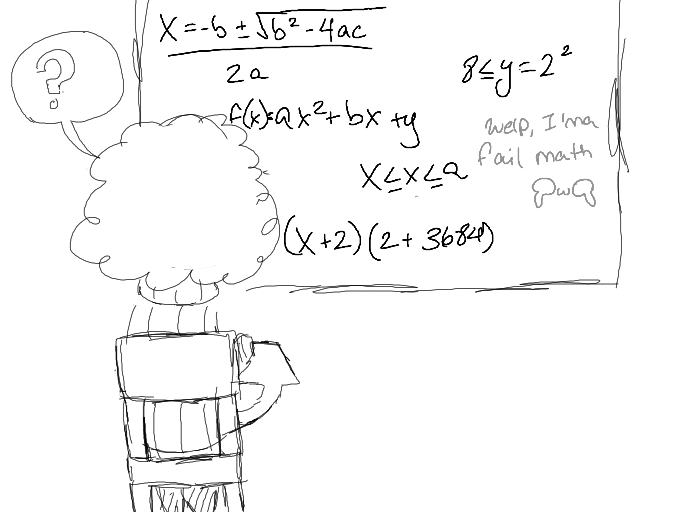 ?
X = -b ± √b² - 4ac
2a
8 ≤ y = 2²
f(x) = ax² + bx + y
welp, I'ma
fail math
QwQ
X ≤ x ≤ a
(x+2)(2+3684)